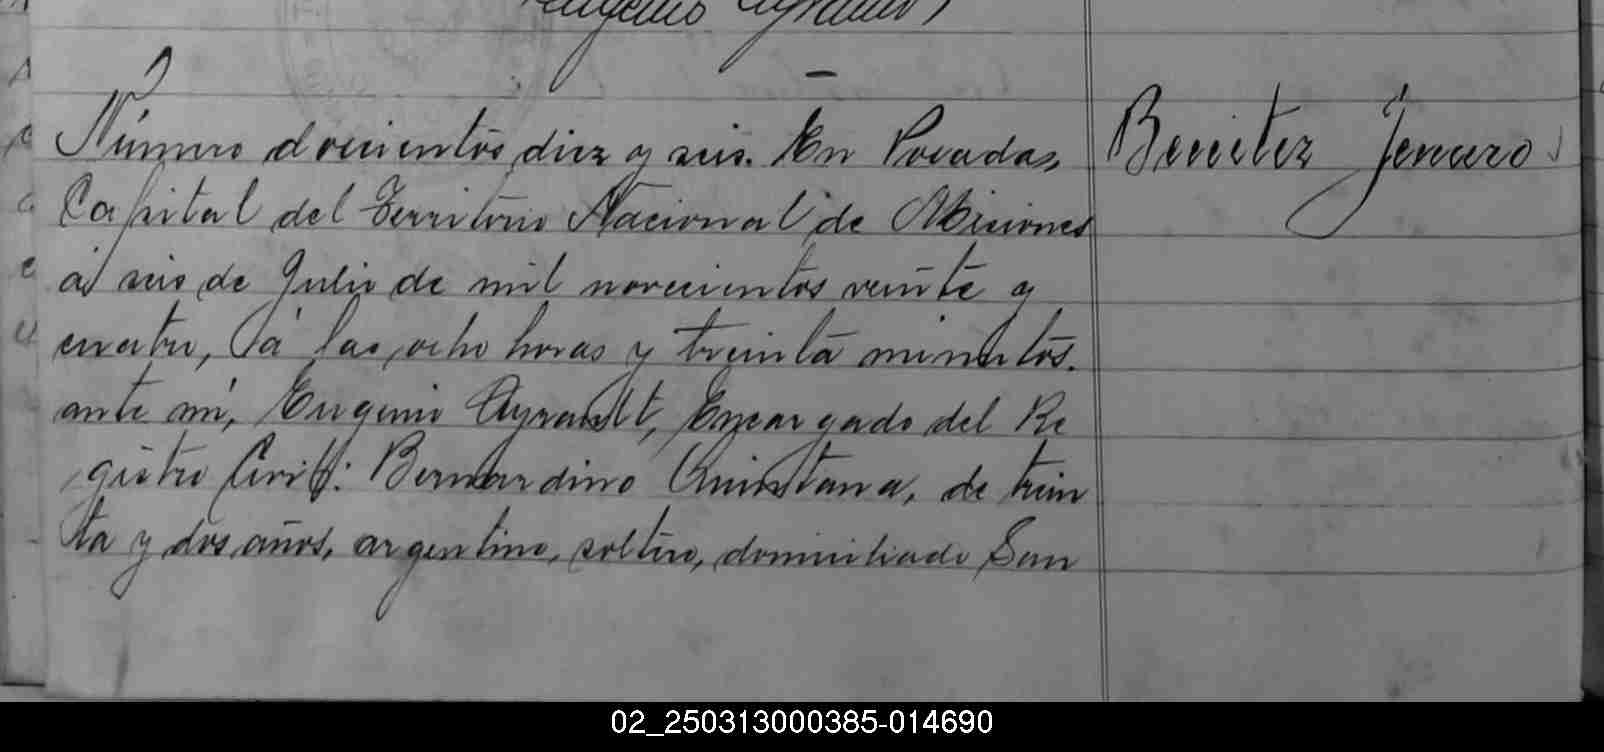 Eugenio Ayrault
Número docientos diez y seis. En Posadas,
Capital del Territorio Nacional de Misiones
á seis de Julio de mil novecientos veinte y
cuatro, á las ocho horas y treinta minutos.
ante mí, Eugenio Ayrault, Encargado del Re
gistro Civil: Bernardino Quintana, de trein
ta y dos años, argentino, soltero, domiciliado San
Benitez Jenaro
02_250313000385-014690